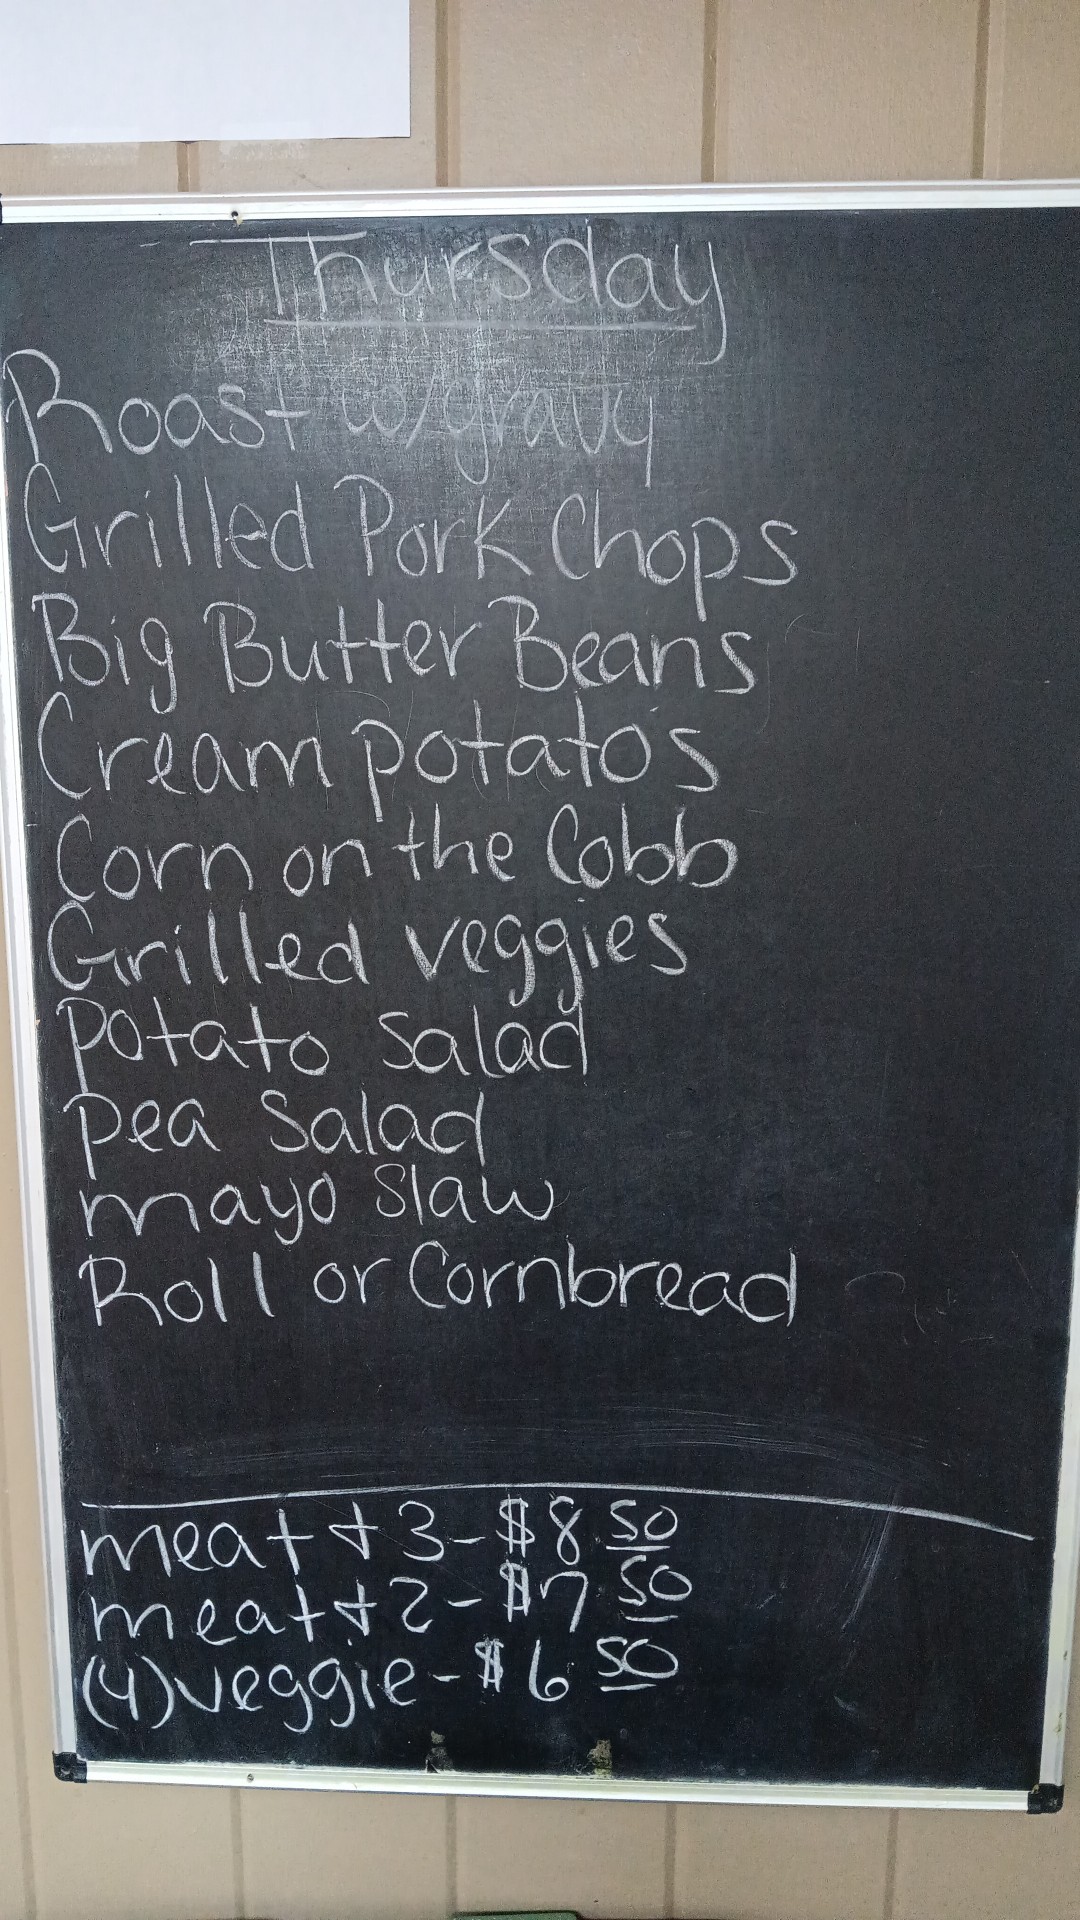 Thursday
Roast w/gravy
Grilled Pork Chops
Big Butter Beans
Cream potato's
Corn on the Cobb
Grilled veggies
Potato Salad
Pea Salad
mayo Slaw
Roll or Cornbread
meat & 3 - $8.50
meat & 2 - $7 50
(4) veggie - $6 50